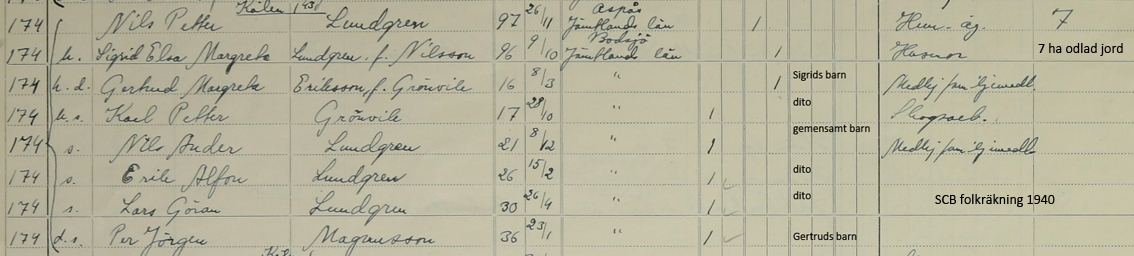 Kölen 1 43
174 Nils Petter Lundgren 97 26/11 Aspås Jämtlands län 1 Hem. äg. 7
174 h. Sigrid Elsa Margreta Lundgren, f. Nilsson 96 9/10 Bodsjö Jämtlands län 1 Husmor 7 ha odlad jord
174 h. d. Gertrud Margreta Eriksson, f. Grönvile 16 8/3 " 1 Sigrids barn Medhj. familjemedl.
174 h. s. Karl Petter Grönvile 17 28/10 " 1 dito Skogsarb.
174 s. Nils Ander Lundgren 21 8/12 " 1 gemensamt barn Medhj. familjemedl.
174 s. Erik Alfon Lundgren 26 15/2 " 1 dito
174 s. Lars Göran Lundgren 30 26/4 " 1 dito SCB folkräkning 1940
174 d. s. Per Jörgen Magnusson 36 23/1 " 1 Gertruds barn